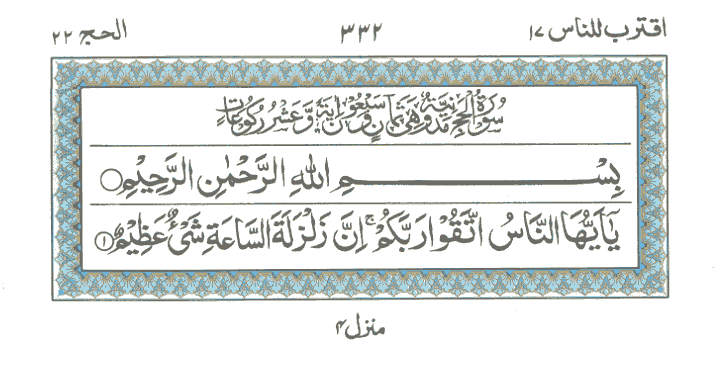 اقترب للناس ١٧ ٣٣٢ الحج ٢٢
سُوْرَةُ الْحَجِّ مَدَنِيَّةٌ وَّهِيَ ثَمَانٍ وَّسَبْعُوْنَ اٰيَةً وَّعَشْرُ رُكُوْعَاتٍ
بِسْمِ اللهِ الرَّحْمٰنِ الرَّحِيْمِ
يٰۤاَيُّهَا النَّاسُ اتَّقُوْا رَبَّكُمْ ۚ اِنَّ زَلْزَلَةَ السَّاعَةِ شَيْءٌ عَظِيْمٌ ١
منزل ۴